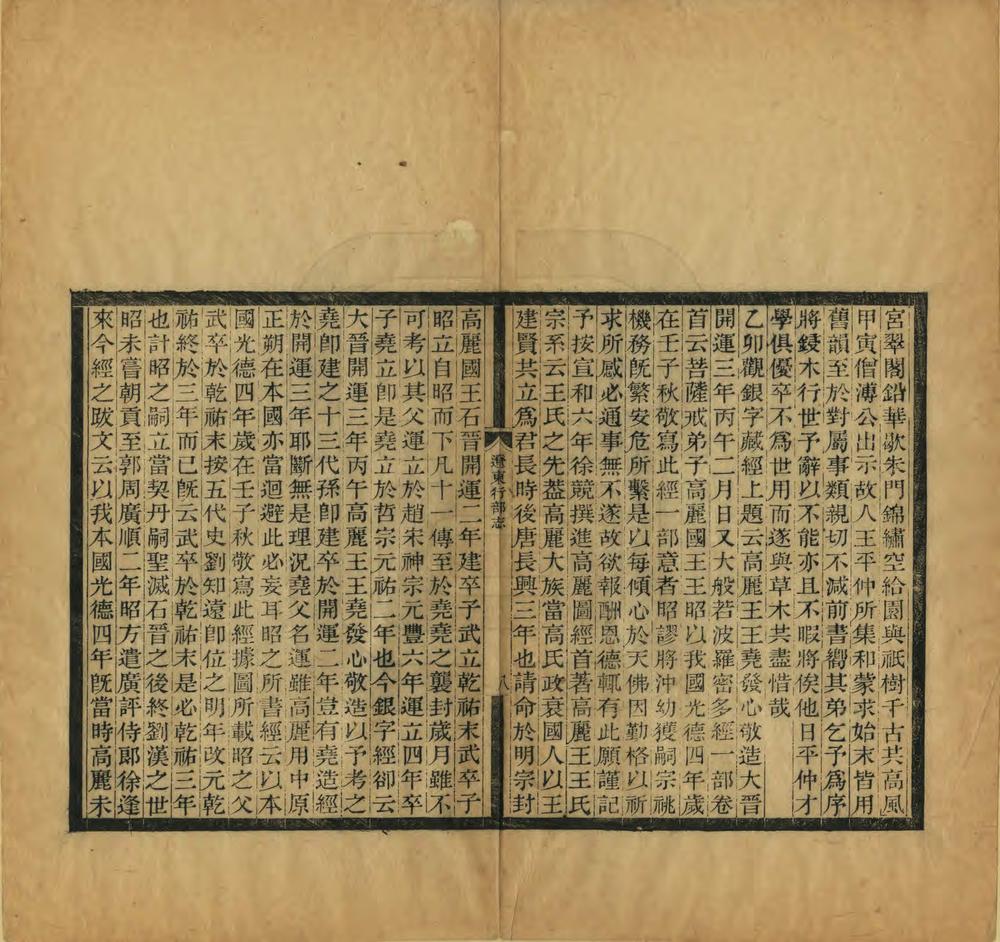 宮翠閣鉛華歇朱門錦繡空給園與祇樹千古共高風
甲寅僧溥公出示故人王平仲所集和蒙求始末皆用
舊韻至於對屬事類親切不減前書嚮其弟乞予為序
將鋟木行世予辭以不能亦且不暇將俟他日平仲才
學俱優卒不為世用而遂與草木共盡惜哉
乙卯觀銀字藏經上題云高麗王王堯發心敬造大晉
開運三年丙午二月日又大般若波羅密多經一部卷
首云菩薩戒弟子高麗國王王昭以我國光德四年歲
在壬子秋敬寫此經一部意者昭謬將沖幼獲嗣宗祧
機務旣繁安危所繫是以每傾心於天佛因勤格以祈
求所感必通事無不遂故欲報酬恩德輒有此願謹記
予按宣和六年徐競撰進高麗圖經首著高麗王王氏
宗系云王氏之先葢高麗大族當高氏政衰國人以王
建賢共立為君長時後唐長興三年也請命於明宗封
遼東行部志
八
高麗國王石晉開運二年建卒子武立乾祐末武卒子
昭立自昭而下凡十一傳至於堯堯之襲封歲月雖不
可考以其父運立於趙宋神宗元豐六年運立四年卒
子堯立卽是堯立於哲宗元祐二年也今銀字經卻云
大晉開運三年丙午高麗王王堯發心敬造以予考之
堯卽建之十三代孫卽建卒於開運二年豈有堯造經
於開運三年耶斷無是理況堯父名運雖高麗用中原
正朔在本國亦當迴避此必妄耳昭之所書經云以本
國光德四年歲在壬子秋敬寫此經據圖所載昭之父
武卒於乾祐末按五代史劉知遠卽位之明年改元乾
祐終於三年而已旣云武卒於乾祐末是必乾祐三年
也計昭之嗣立當契丹嗣聖滅石晉之後終劉漢之世
昭未嘗朝貢至郭周廣順二年昭方遣廣評侍郞徐逢
來今經之跋文云以我本國光德四年旣當時高麗未